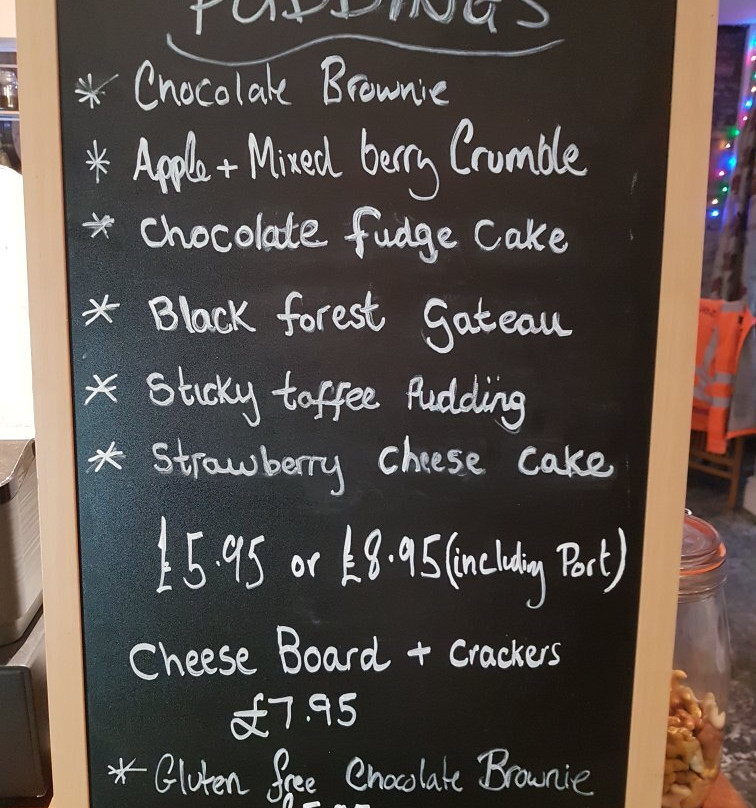 PUDDINGS
* Chocolate Brownie
* Apple + Mixed berry Crumble
* Chocolate fudge Cake
* Black forest Gateau
* Sticky toffee Pudding
* Strawberry Cheese Cake
£5.95 or £8.95 (including Port)
Cheese Board + Crackers
£7.95
* Gluten free Chocolate Brownie